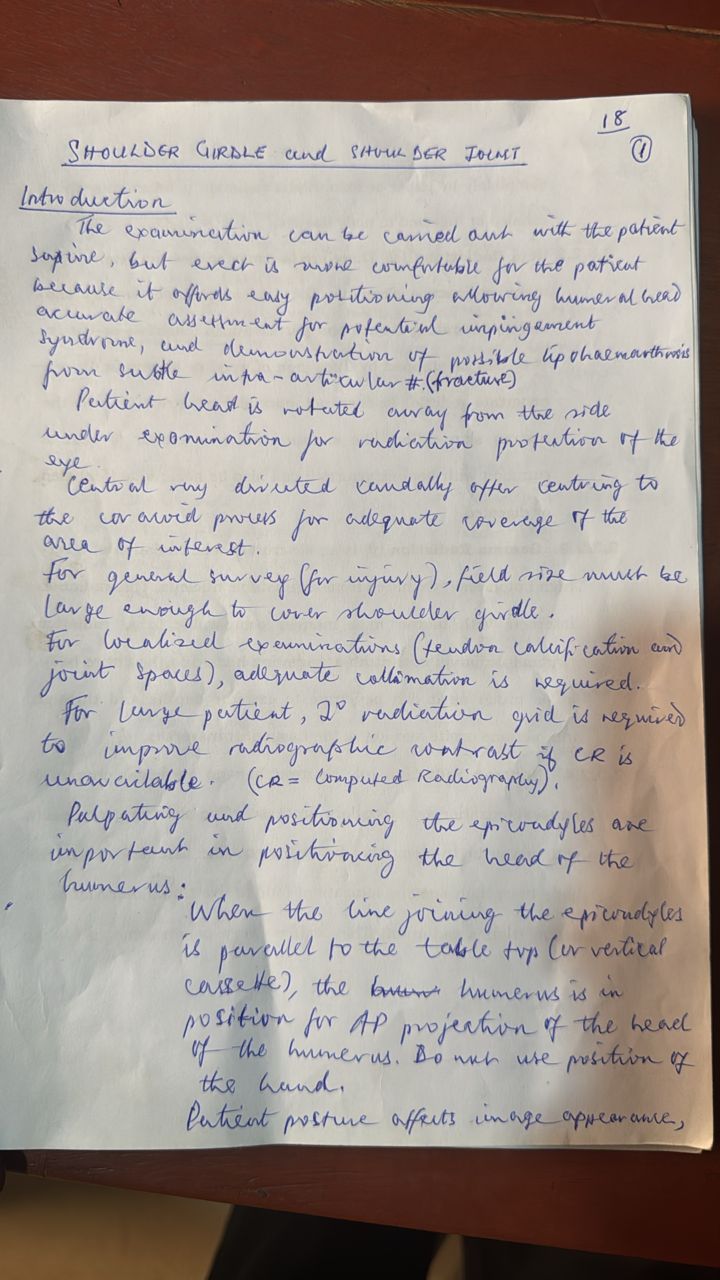 18
①
SHOULDER GIRDLE and SHOULDER JOINT
Introduction
The examination can be carried out with the patient
supine, but erect is more comfortable for the patient
because it affords easy positioning allowing humeral head
accurate assessment for potential impingement
syndrome, and demonstration of possible lipohaemarthrosis
from subtle intra-articular #. (fracture)
Patient head is rotated away from the side
under examination for radiation protection of the
eye.
Central ray directed caudally after centring to
the coracoid process for adequate coverage of the
area of interest.
For general survey (for injury), field size must be
large enough to cover shoulder girdle.
For localized examinations (tendon calcification and
joint spaces), adequate collimation is required.
For large patient, 2° radiation grid is required
to improve radiographic contrast if CR is
unavailable. (CR = Computed Radiography).
Palpating and positioning the epicondyles are
important in positioning the head of the
humerus:
When the line joining the epicondyles
is parallel to the table top (or vertical
cassette), the humerus is in
position for AP projection of the head
of the humerus. Do not use position of
the hand.
Patient posture affects image appearance,